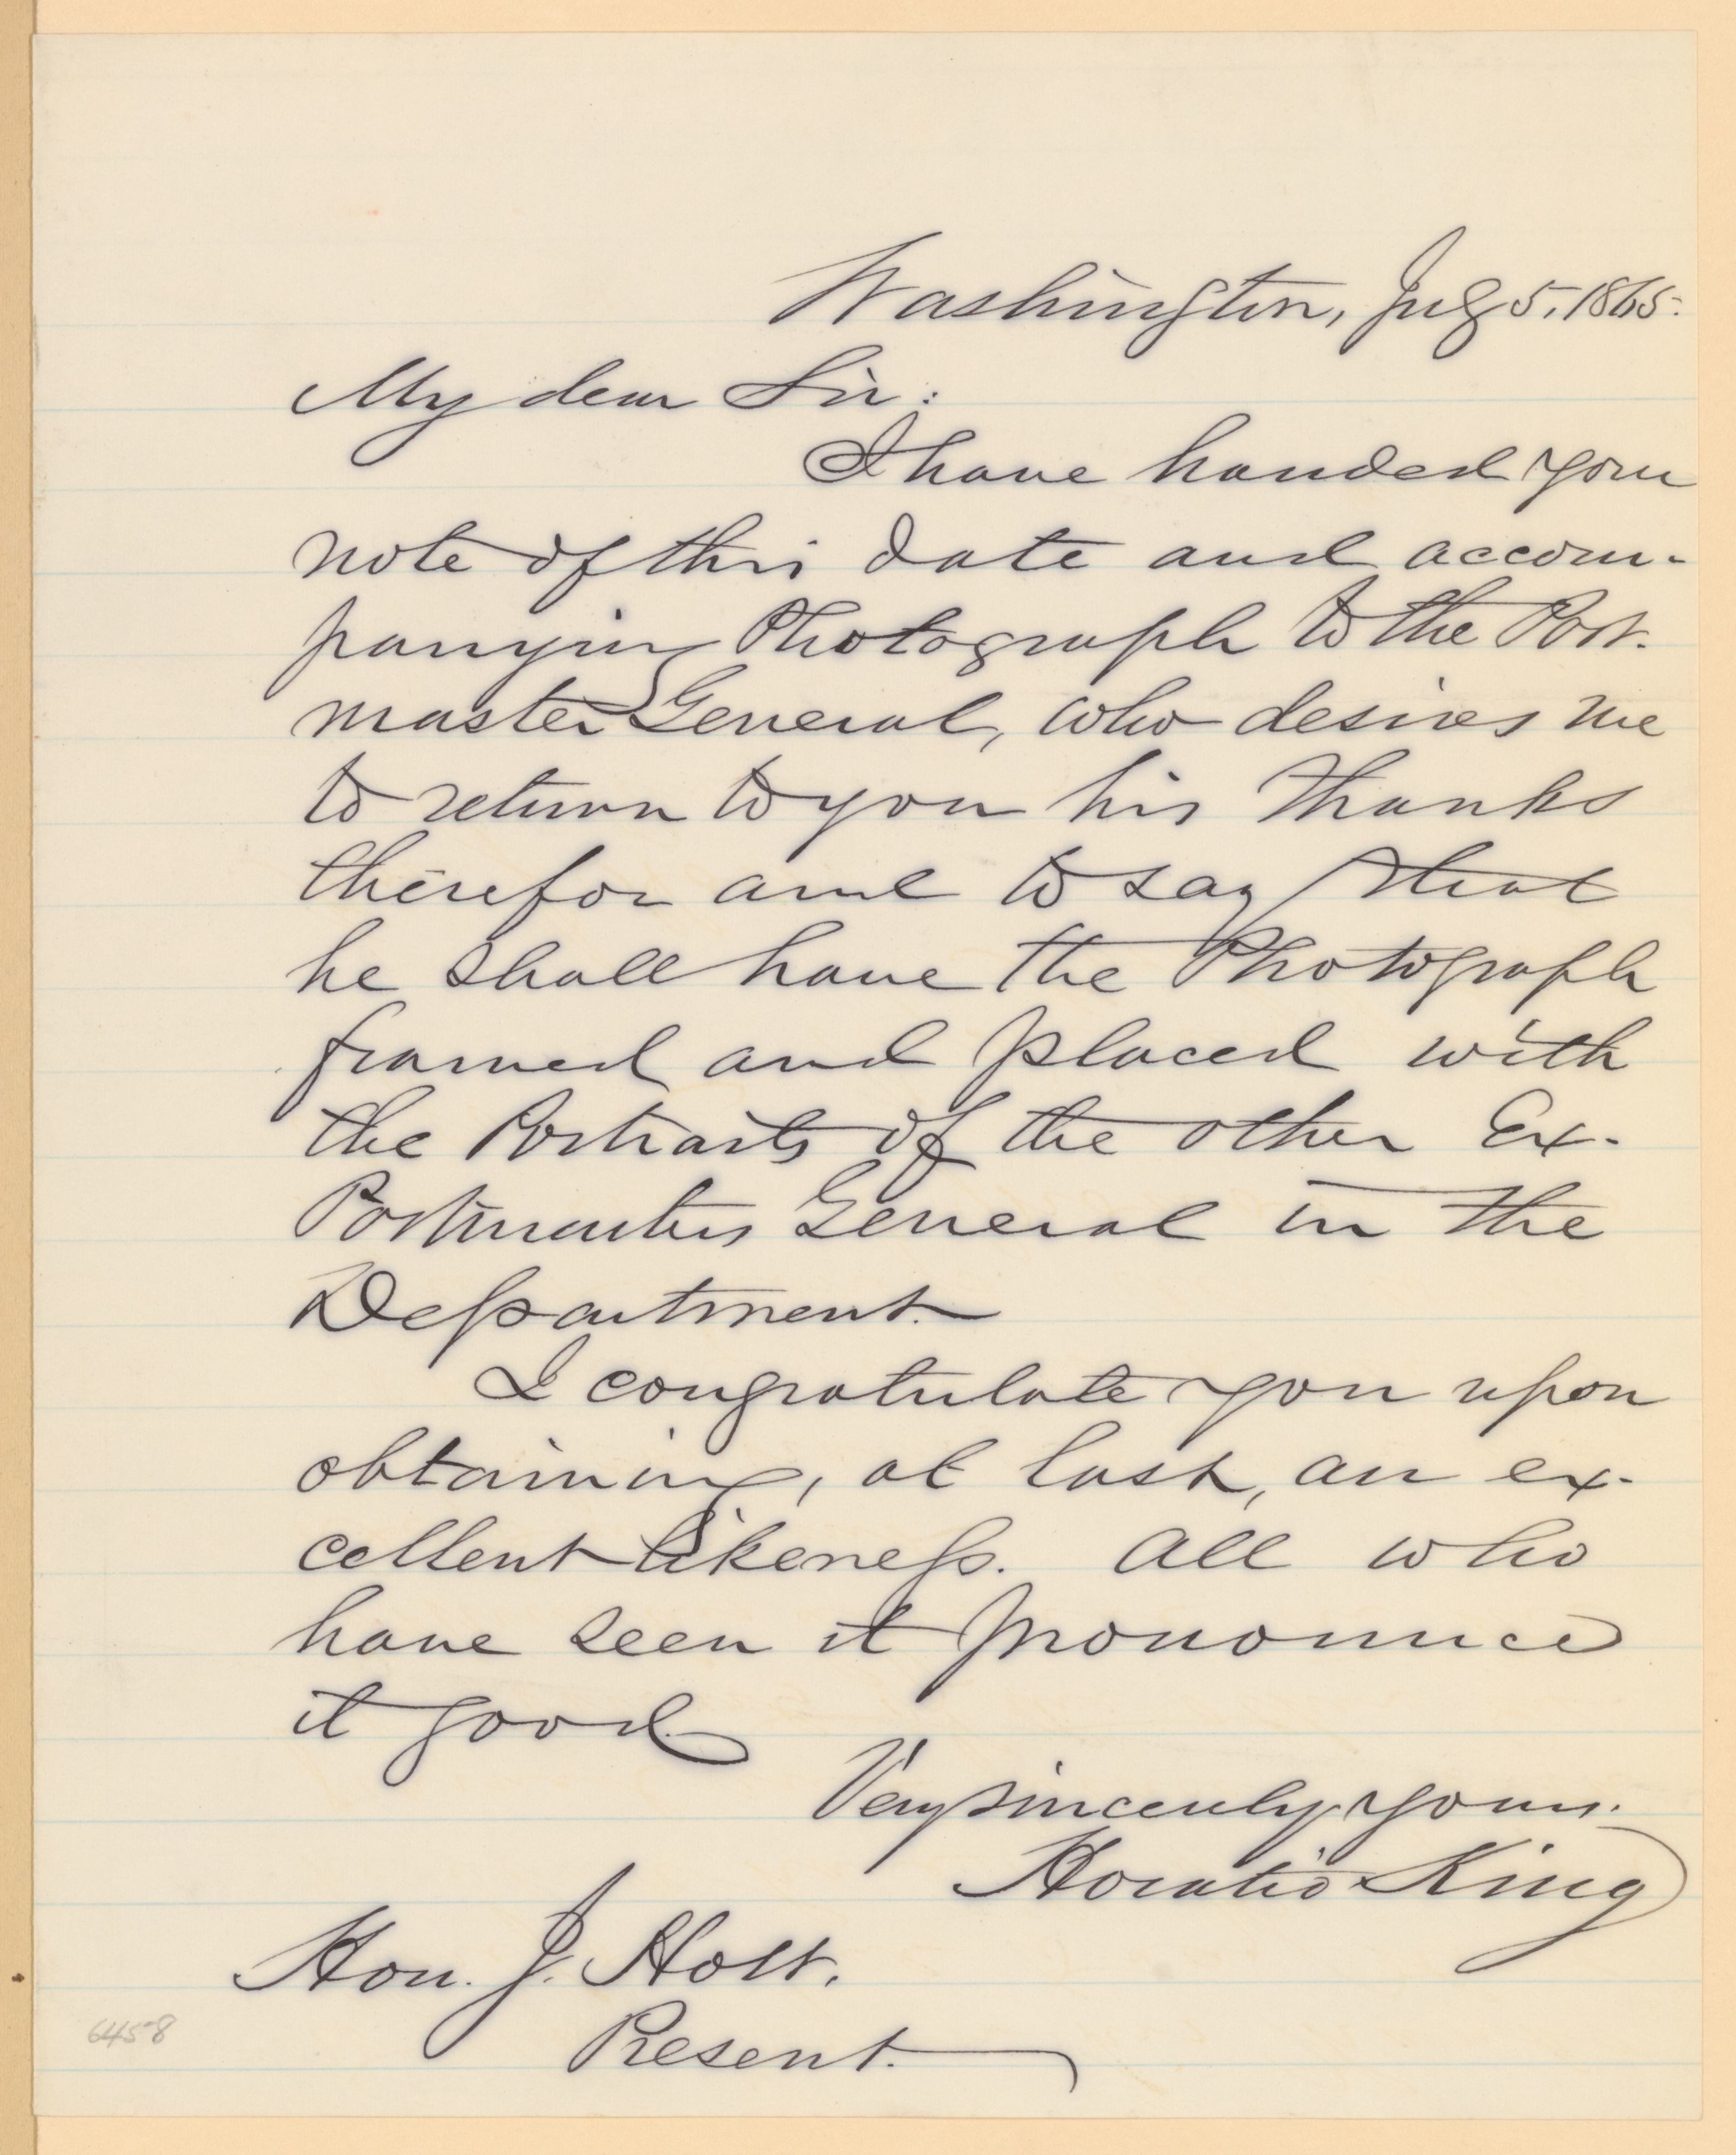 Washington, July 5, 1865.
My dear Sir:
I have handed your
note of this date and accom-
panying Photograph to the Post-
master General, who desires me
to return to you his thanks
therefor and to say that
he shall have the Photograph
framed and placed with
the Portraits of the other Ex-
Postmasters General in the
Department.
I congratulate you upon
obtaining, at last, an ex-
cellent likeness. All who
have seen it pronounce
it good.
Very sincerely yours.
Horatio King
Hon. J. Holt.
Present.
6458